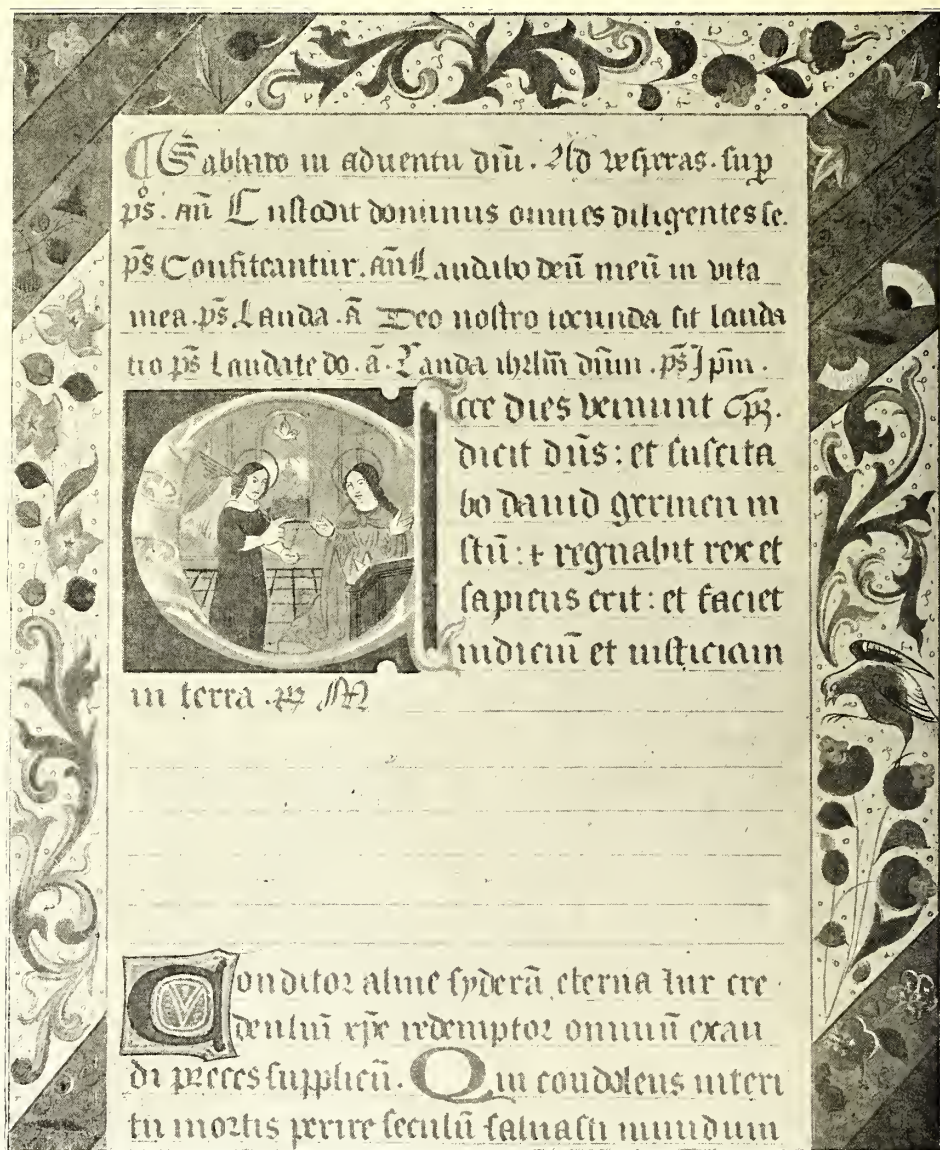 ¶ Sabbato in aduentu dñi. Ad vesperas. sup
ps. añ Custodit dominus omnes diligentes se.
ps̄ Confiteantur. añ Laudabo deū meū in vita
mea. ps̄. Lauda. ā Deo nostro iocunda sit lauda
tio ps̄ Laudate do. ā. Lauda ihrlm̄ dñm. ps̄ Ipm̄.
Ecce dies veniunt Cpꝫ.
dicit dn̄s: et suscita
bo dauid germen iu
stū: ⁊ regnabit rex et
sapiens erit: et faciet
iudiciū et iusticiam
in terra.
Conditor alme syderū eterna lux cre
dentiū xp̄e redemptor omniū exau
di preces supplicū. Qui condolens interi
tu mortis perire seculū saluasti mundum